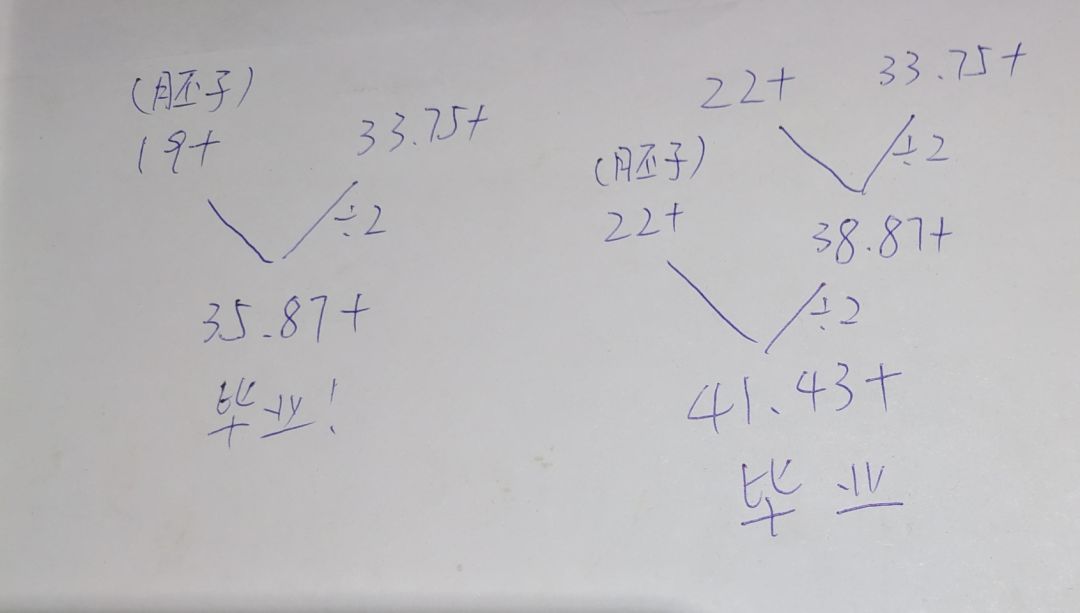 (胚子)
19+
33.75+
÷2
35.87+
毕业!
22+
33.75+
÷2
(胚子)
22+
38.87+
÷2
41.43+
毕业